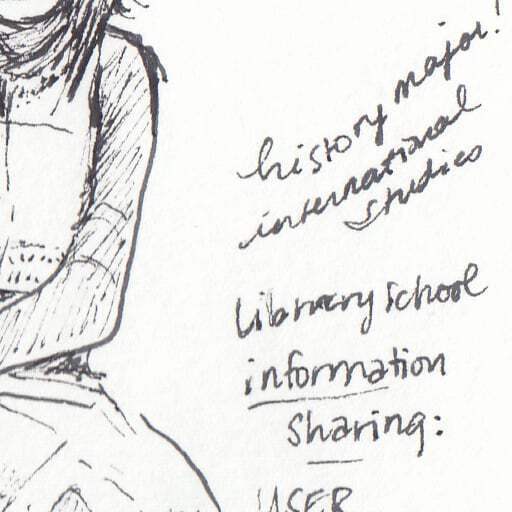 history major!
international
studies
Library School
information
sharing:
USER